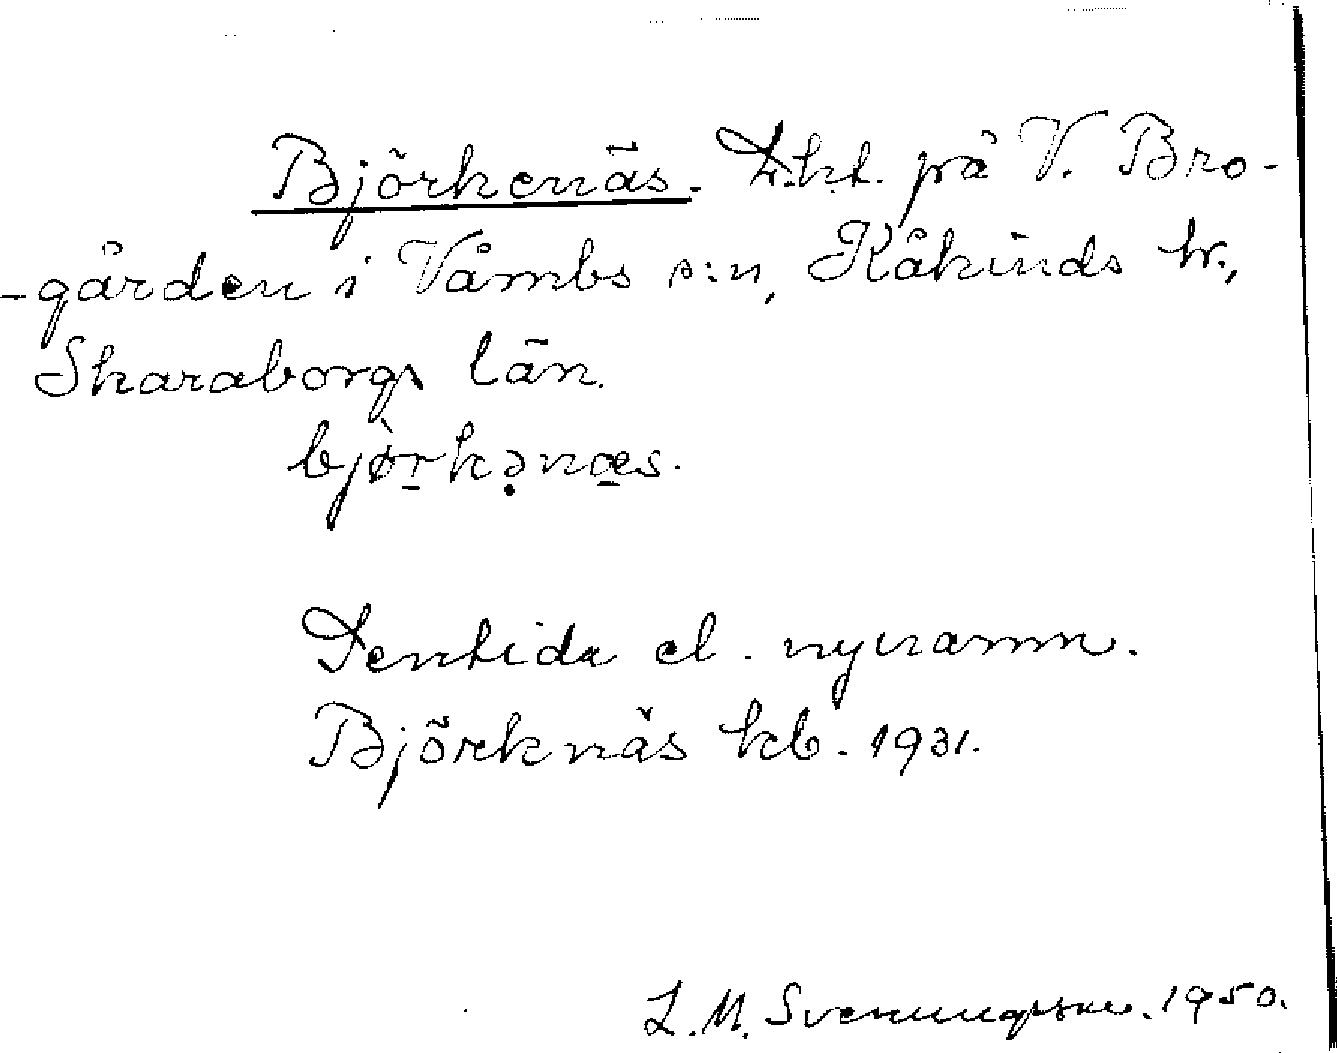 Björkenäs. L.ht. på V. Bro-
-gården i Våmbs s:n, Kåkinds hr.,
Skaraborgs län.
bjørkənæs.
Sentida el. nynamn.
Björknäs kb. 1931.
L. M. Svenungsson. 1950.